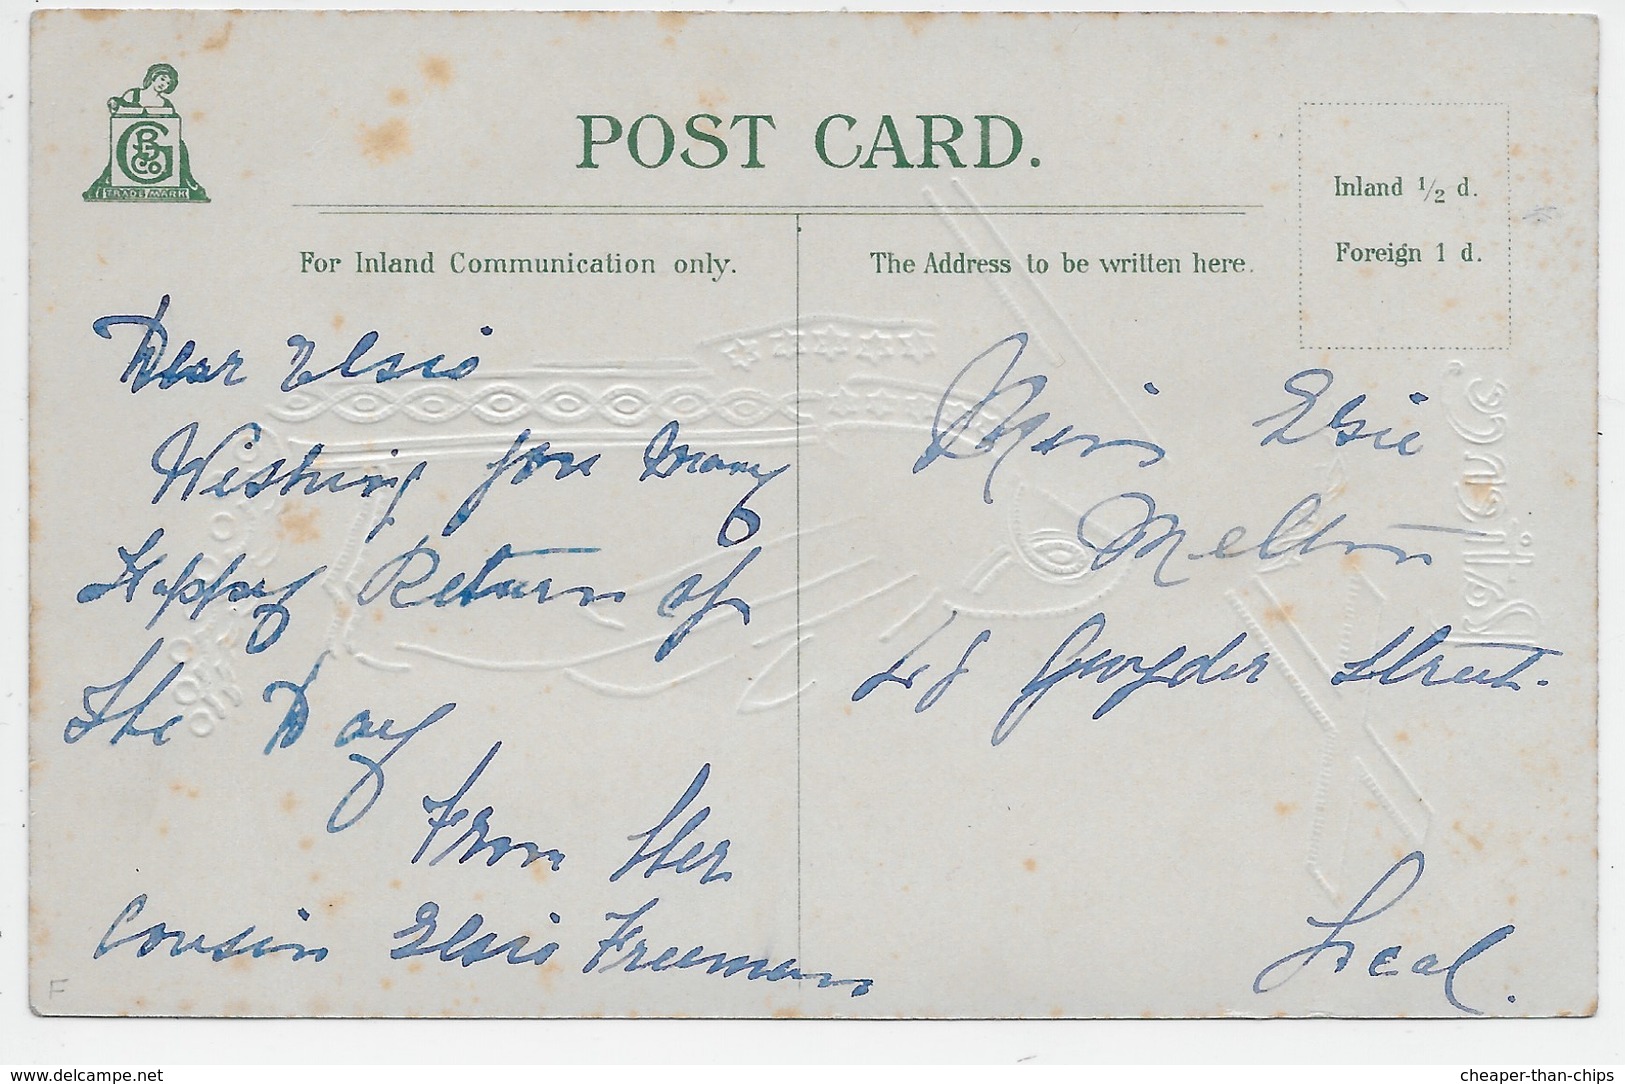 GPB Co
TRADE MARK
POST CARD.
Inland 1/2 d.
Foreign 1 d.
For Inland Communication only.
The Address to be written here.
Dear Elsie
Wishing you many
Happy Return of
the Day
From Her
Cousin Elsie Freeman
Miss Elsie
Melton
Street.
Local.
www.delcampe.net
cheaper-than-chips